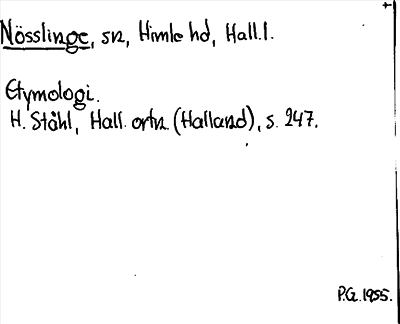 Nösslinge, sn, Himle hd, Hall. l.
Etymologi.
H. Ståhl, Hall. ortn. (Halland), s. 247.
P.G. 1955.